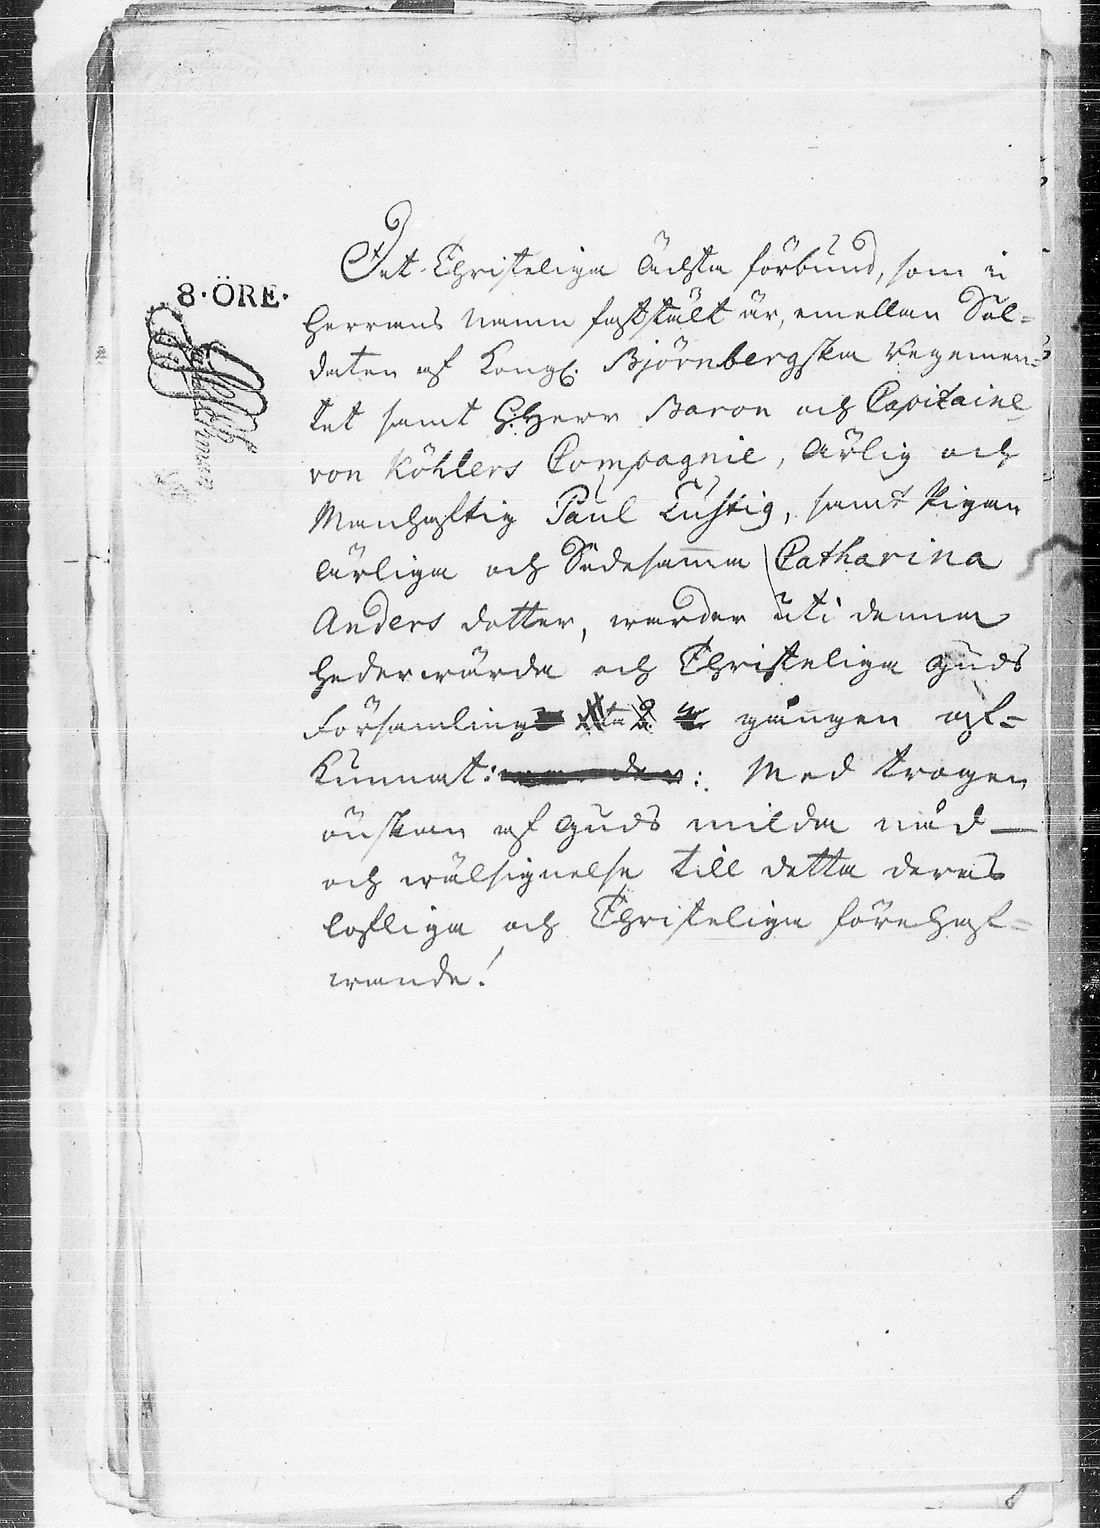 8·ÖRE·
Det Christeliga Ächta förbund, som i
Herrans Namn fastställt är, emellan Sol=
daten af Kongl. Björnbergska Regemen=
tet samt H: Herr Baron och Capitaine
von Köhlers Compagnie, Ärlig och
Manhaftig Paul Lustig, samt Pigan
Ärliga och Sedesamma Catharina
Anders dotter, warder uti denna
hederwärda och Christeliga Guds
Församling gången af=
kunnat: : Med trogen
önskan af Guds milda nåd
och wälsignelse till detta deras
lofliga och Christeliga förehaf=
wande!